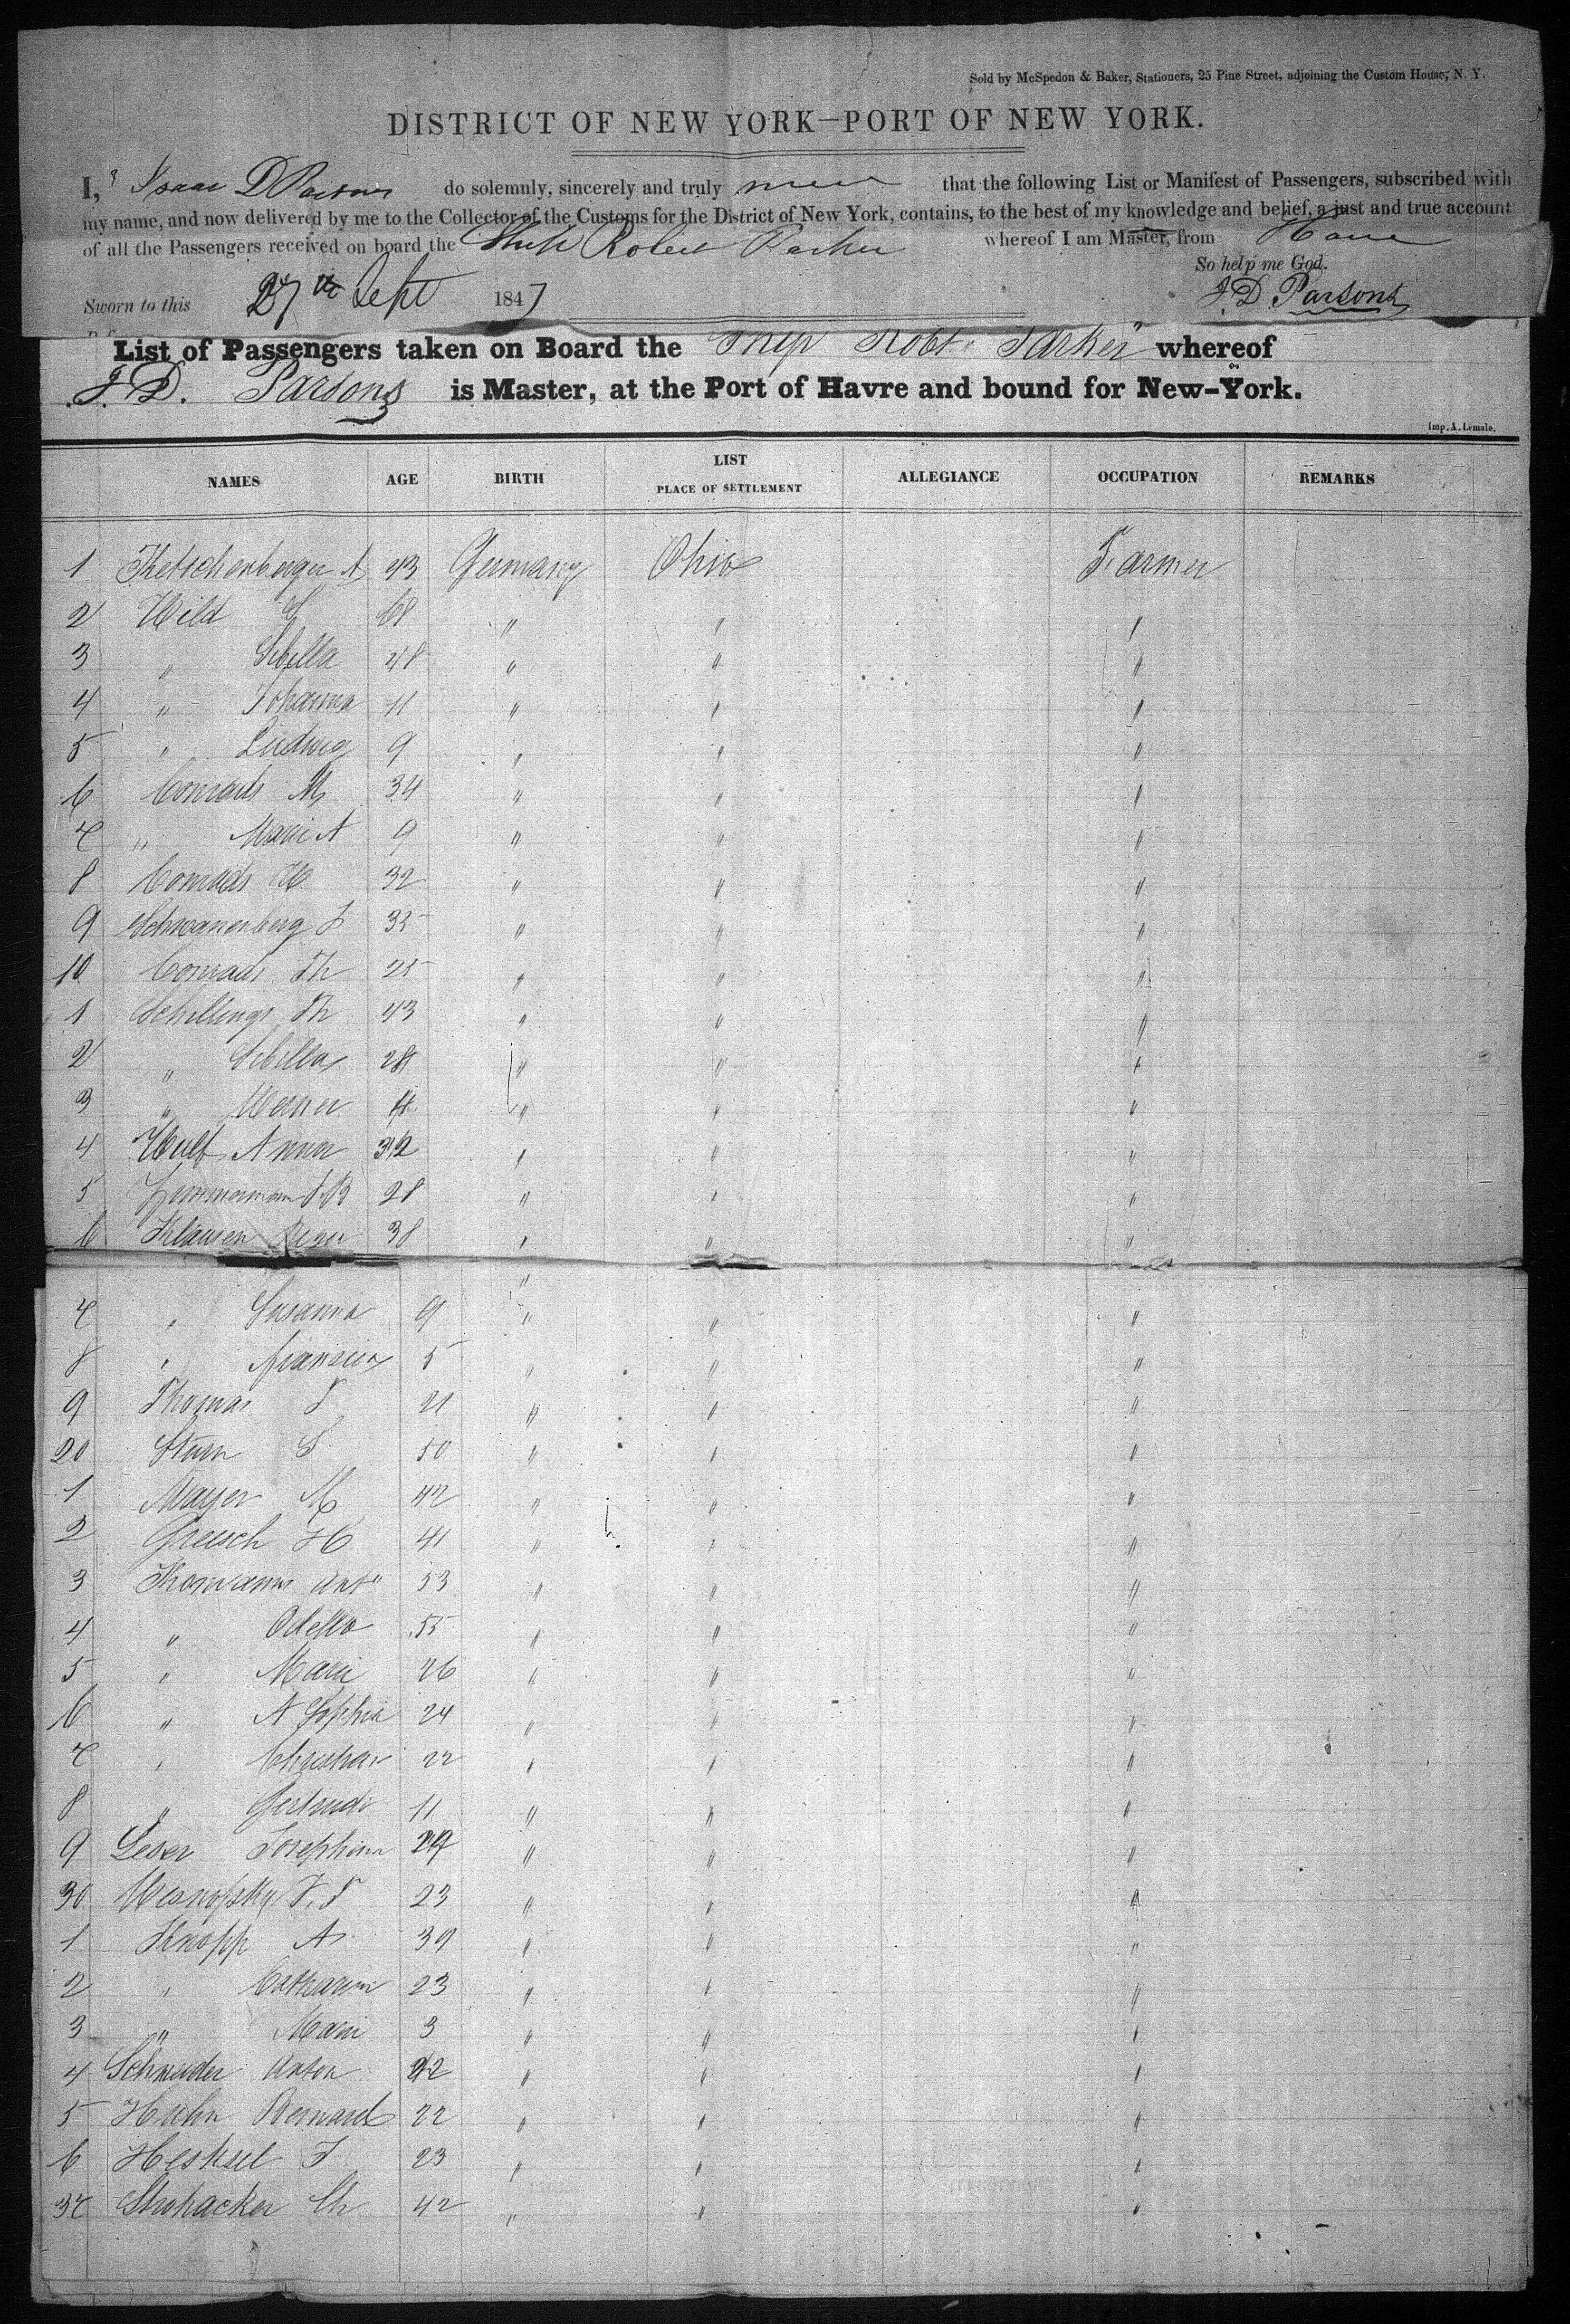 Sold by McSpedon & Baker, Stationers, 25 Pine Street, adjoining the Custom House, N. Y.
DISTRICT OF NEW YORK—PORT OF NEW YORK.
I, Isaac D Parsons do solemnly, sincerely and truly swear that the following List or Manifest of Passengers, subscribed with
my name, and now delivered by me to the Collector of the Customs for the District of New York, contains, to the best of my knowledge and belief, a just and true account
of all the Passengers received on board the Ship Robert Parker whereof I am Master, from Havre
So help me God.
Sworn to this 27th Sept 1847
J. D. Parsons
List of Passengers taken on Board the Ship Robt. Parker whereof
J. D. Parsons is Master, at the Port of Havre and bound for New-York.
Imp. A. Lemale.
NAMES AGE BIRTH LIST PLACE OF SETTLEMENT ALLEGIANCE OCCUPATION REMARKS
1 Ketschenberger A 43 Germany Ohio Farmer
2 Wild 68 " " "
3 " Sibilla 48 " " "
4 " Johanna 11 " " "
5 " Ludwig 9 " " "
6 Conrads M 34 " " "
7 " Mari A 9 " " "
8 Conrads 32 " " "
9 Schwanenberg J 35 " " "
10 Conrads Th 25 " " "
1 Schillings Th 43 " " "
2 " Sibilla 28 " " "
3 " Werner " " "
4 Anna 32 " " "
5 Zimmermann 28 " " "
6 Klausen 38 " " "
7 " Susanna 9 " " "
8 " 5 " " "
9 Thomas J 21 " " "
20 Sturn S 50 " " "
1 Mayer M 42 " " "
2 Greisch H 41 " " "
3 Thomanns Ant 53 " " "
4 " Odella 55 " " "
5 " Mari 26 " " "
6 " A Sophia 24 " " "
7 " Christian 22 " " "
8 " Gertrudi 11 " " "
9 Leser Josephina " " "
30 23 " " "
1 Knopp A 39 " " "
2 " Catharini 23 " " "
3 " Mari 3 " " "
4 Schneider Anton 22 " " "
5 Huhn Bernard 22 " " "
6 Heskel J 23 " " "
37 Strohacker Ch 42 " " "